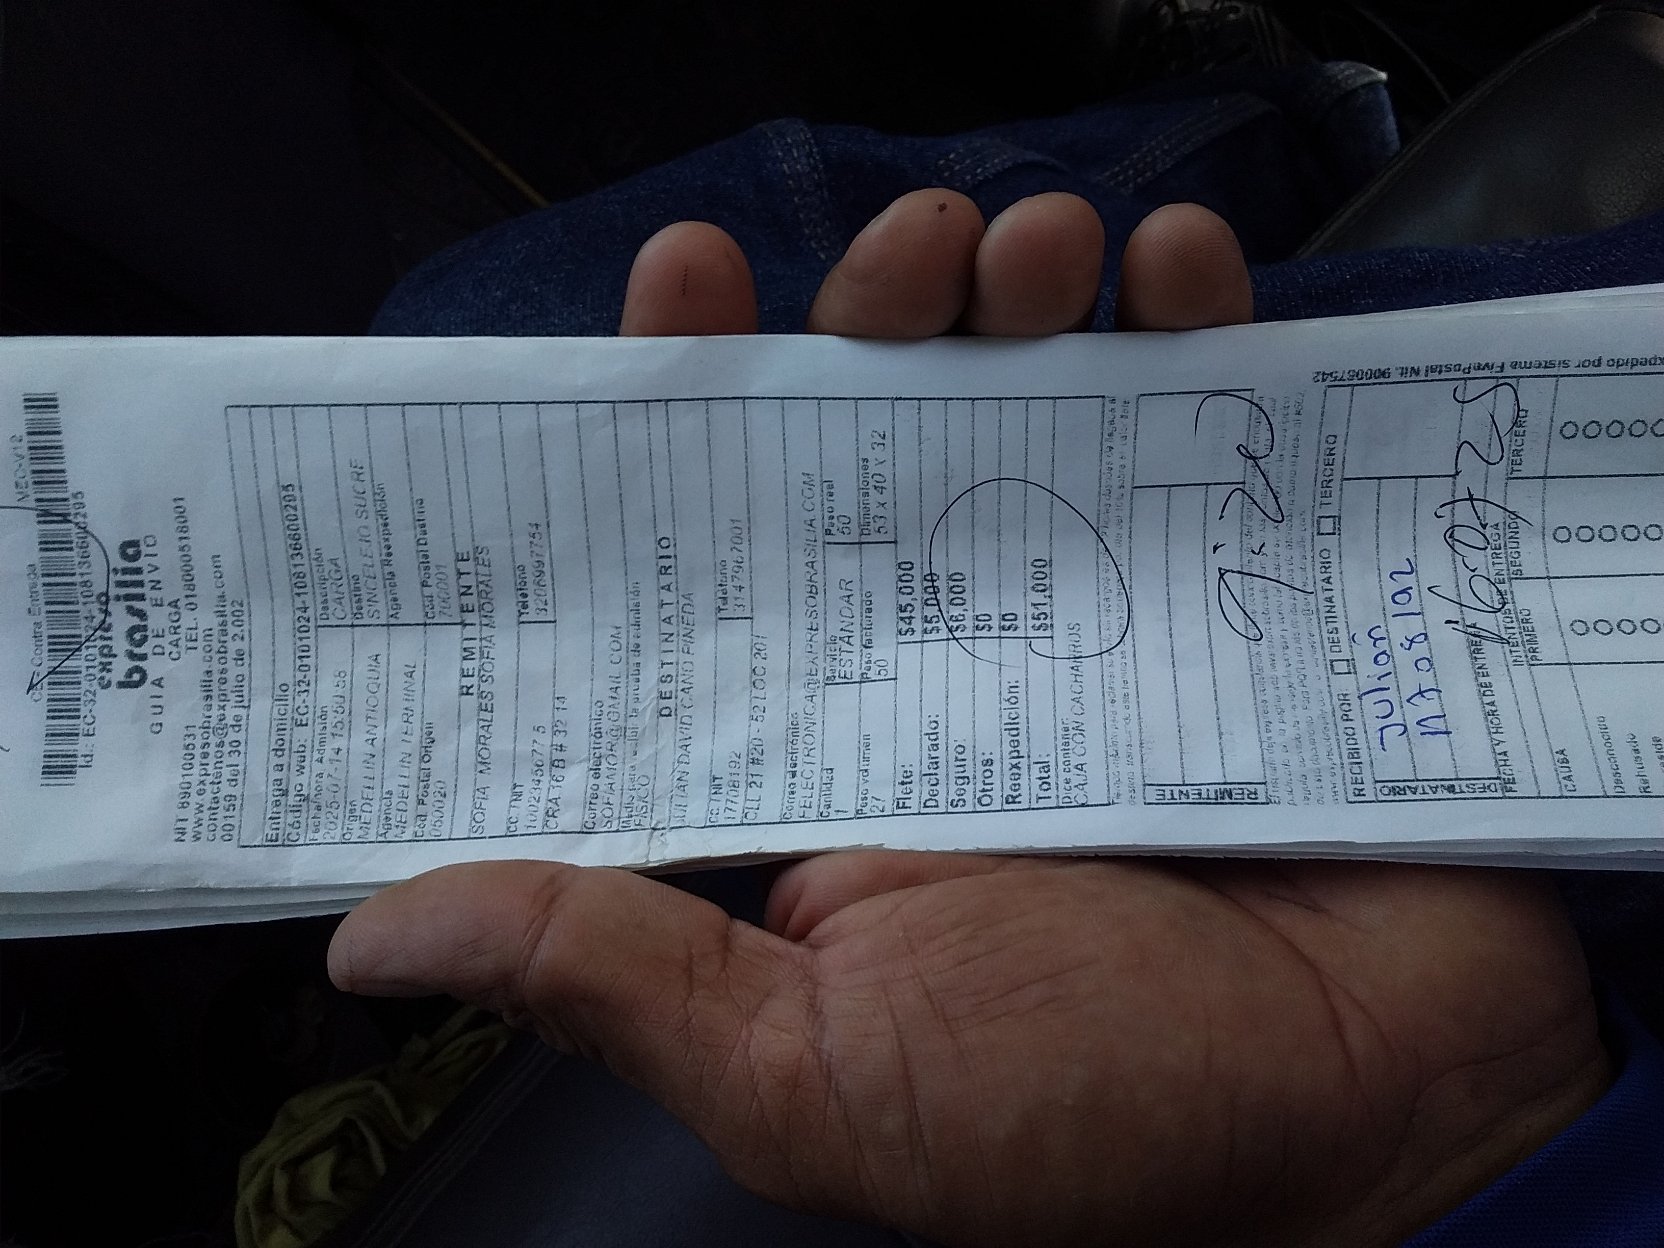 CE-Contra Entrega
Id.: EC-32-0101024-1081366600295
expreso
brasilia
GUIA DE ENVIO
CARGA
NIT 890100531 TEL. 018000518001
www.expresobrasilia.com
contactenos@expresobrasilia.com
00159 del 30 de julio de 2.002
Entrega a domicilio
Código web: EC-32-0101024-1081366600295
Fecha/hora Admisión Descripción
2025-07-14 15:50:58 CARGA
Origen Destino
MEDELLIN ANTIOQUIA SINCELEJO SUCRE
Agencia Agencia Reexpedición
MEDELLIN TERMINAL
Cód. Postal Origen Cód. Postal Destino
050020 700001
REMITENTE
SOFIA MORALES SOFIA MORALES
CC / NIT Teléfono
100234567 7 5 3206997754
CRA 16 B # 32 14
Correo electrónico
SOFIAMOR@GMAIL.COM
FISICO
DESTINATARIO
JULIAN DAVID CANO PINEDA
CC / NIT Teléfono
17708192 3147967001
CLL 21 #20 - 52 LOC 201
Correo electrónico
FELECTRONICA@EXPRESOBRASILIA.COM
Cantidad Servicio Peso real
1 ESTANDAR 50
Peso volumen Peso facturado Dimensiones
27 50 53 x 40 x 32
Flete: $45,000
Declarado: $5,000
Seguro: $6,000
Otros: $0
Reexpedición: $0
Total: $51,000
Dice contener:
CAJA CON CACHARROS
REMITENTE
RECIBIDO POR DESTINATARIO TERCERO
Julión
17708192
DESTINATARIO
16-07-25
FECHA Y HORA DE ENTREGA
INTENTOS DE ENTREGA
PRIMERO SEGUNDO TERCERO
CAUSA
Desconocido
Rehusado
xpedido por sistema FivePostal Nit. 900087542